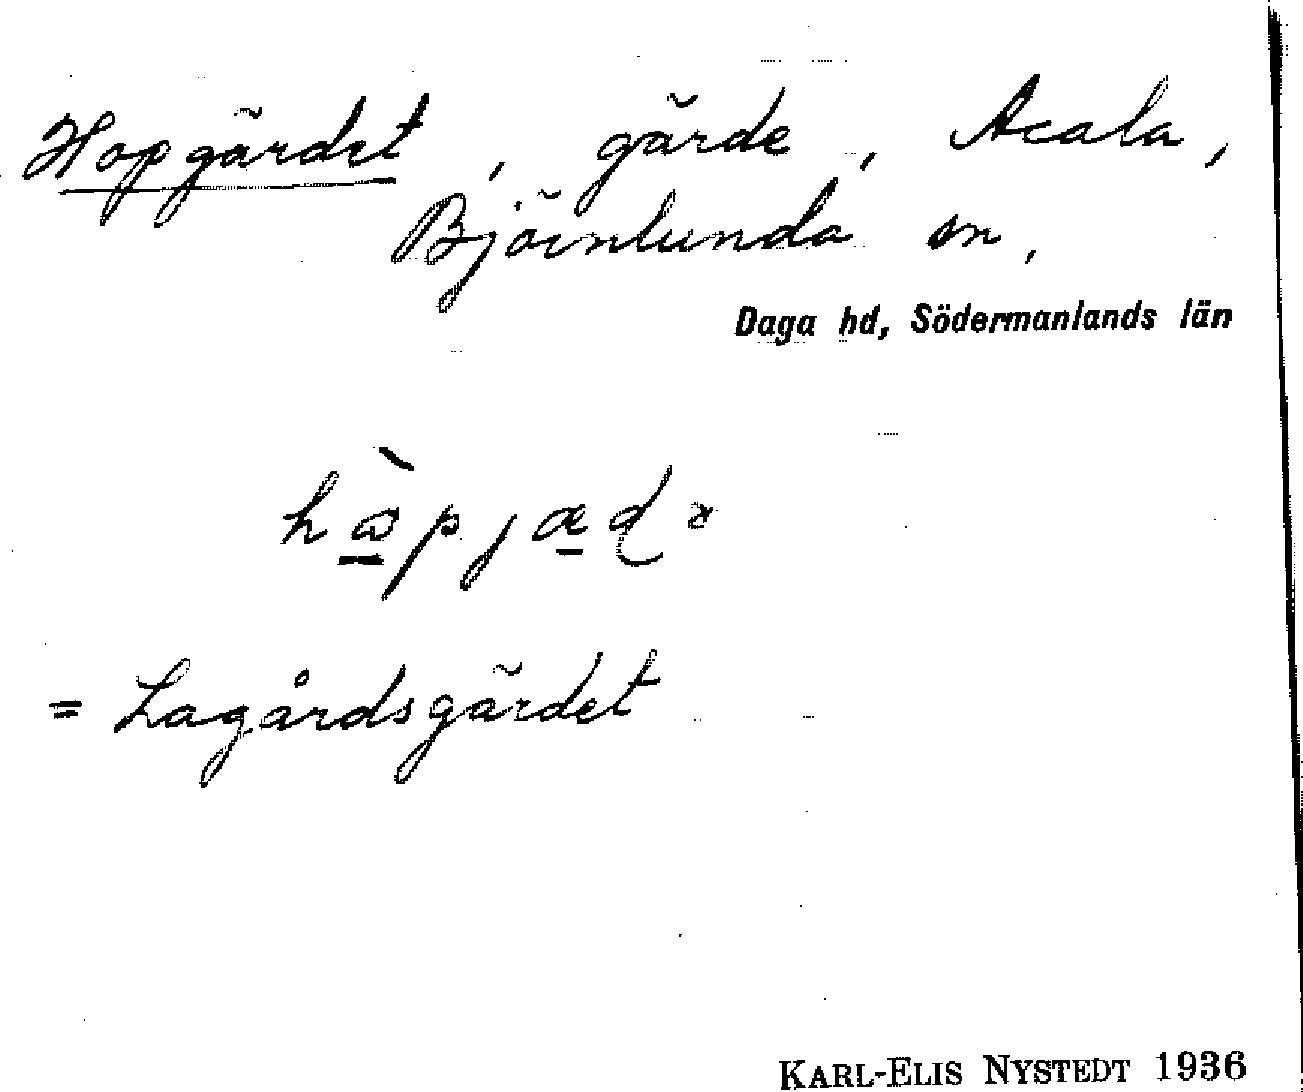 Hopgärdet, gärde, Acala,
Björnlunda sn,
Daga hd, Södermanlands län
= Lagårdsgärdet
KARL-ELIS NYSTEDT 1936